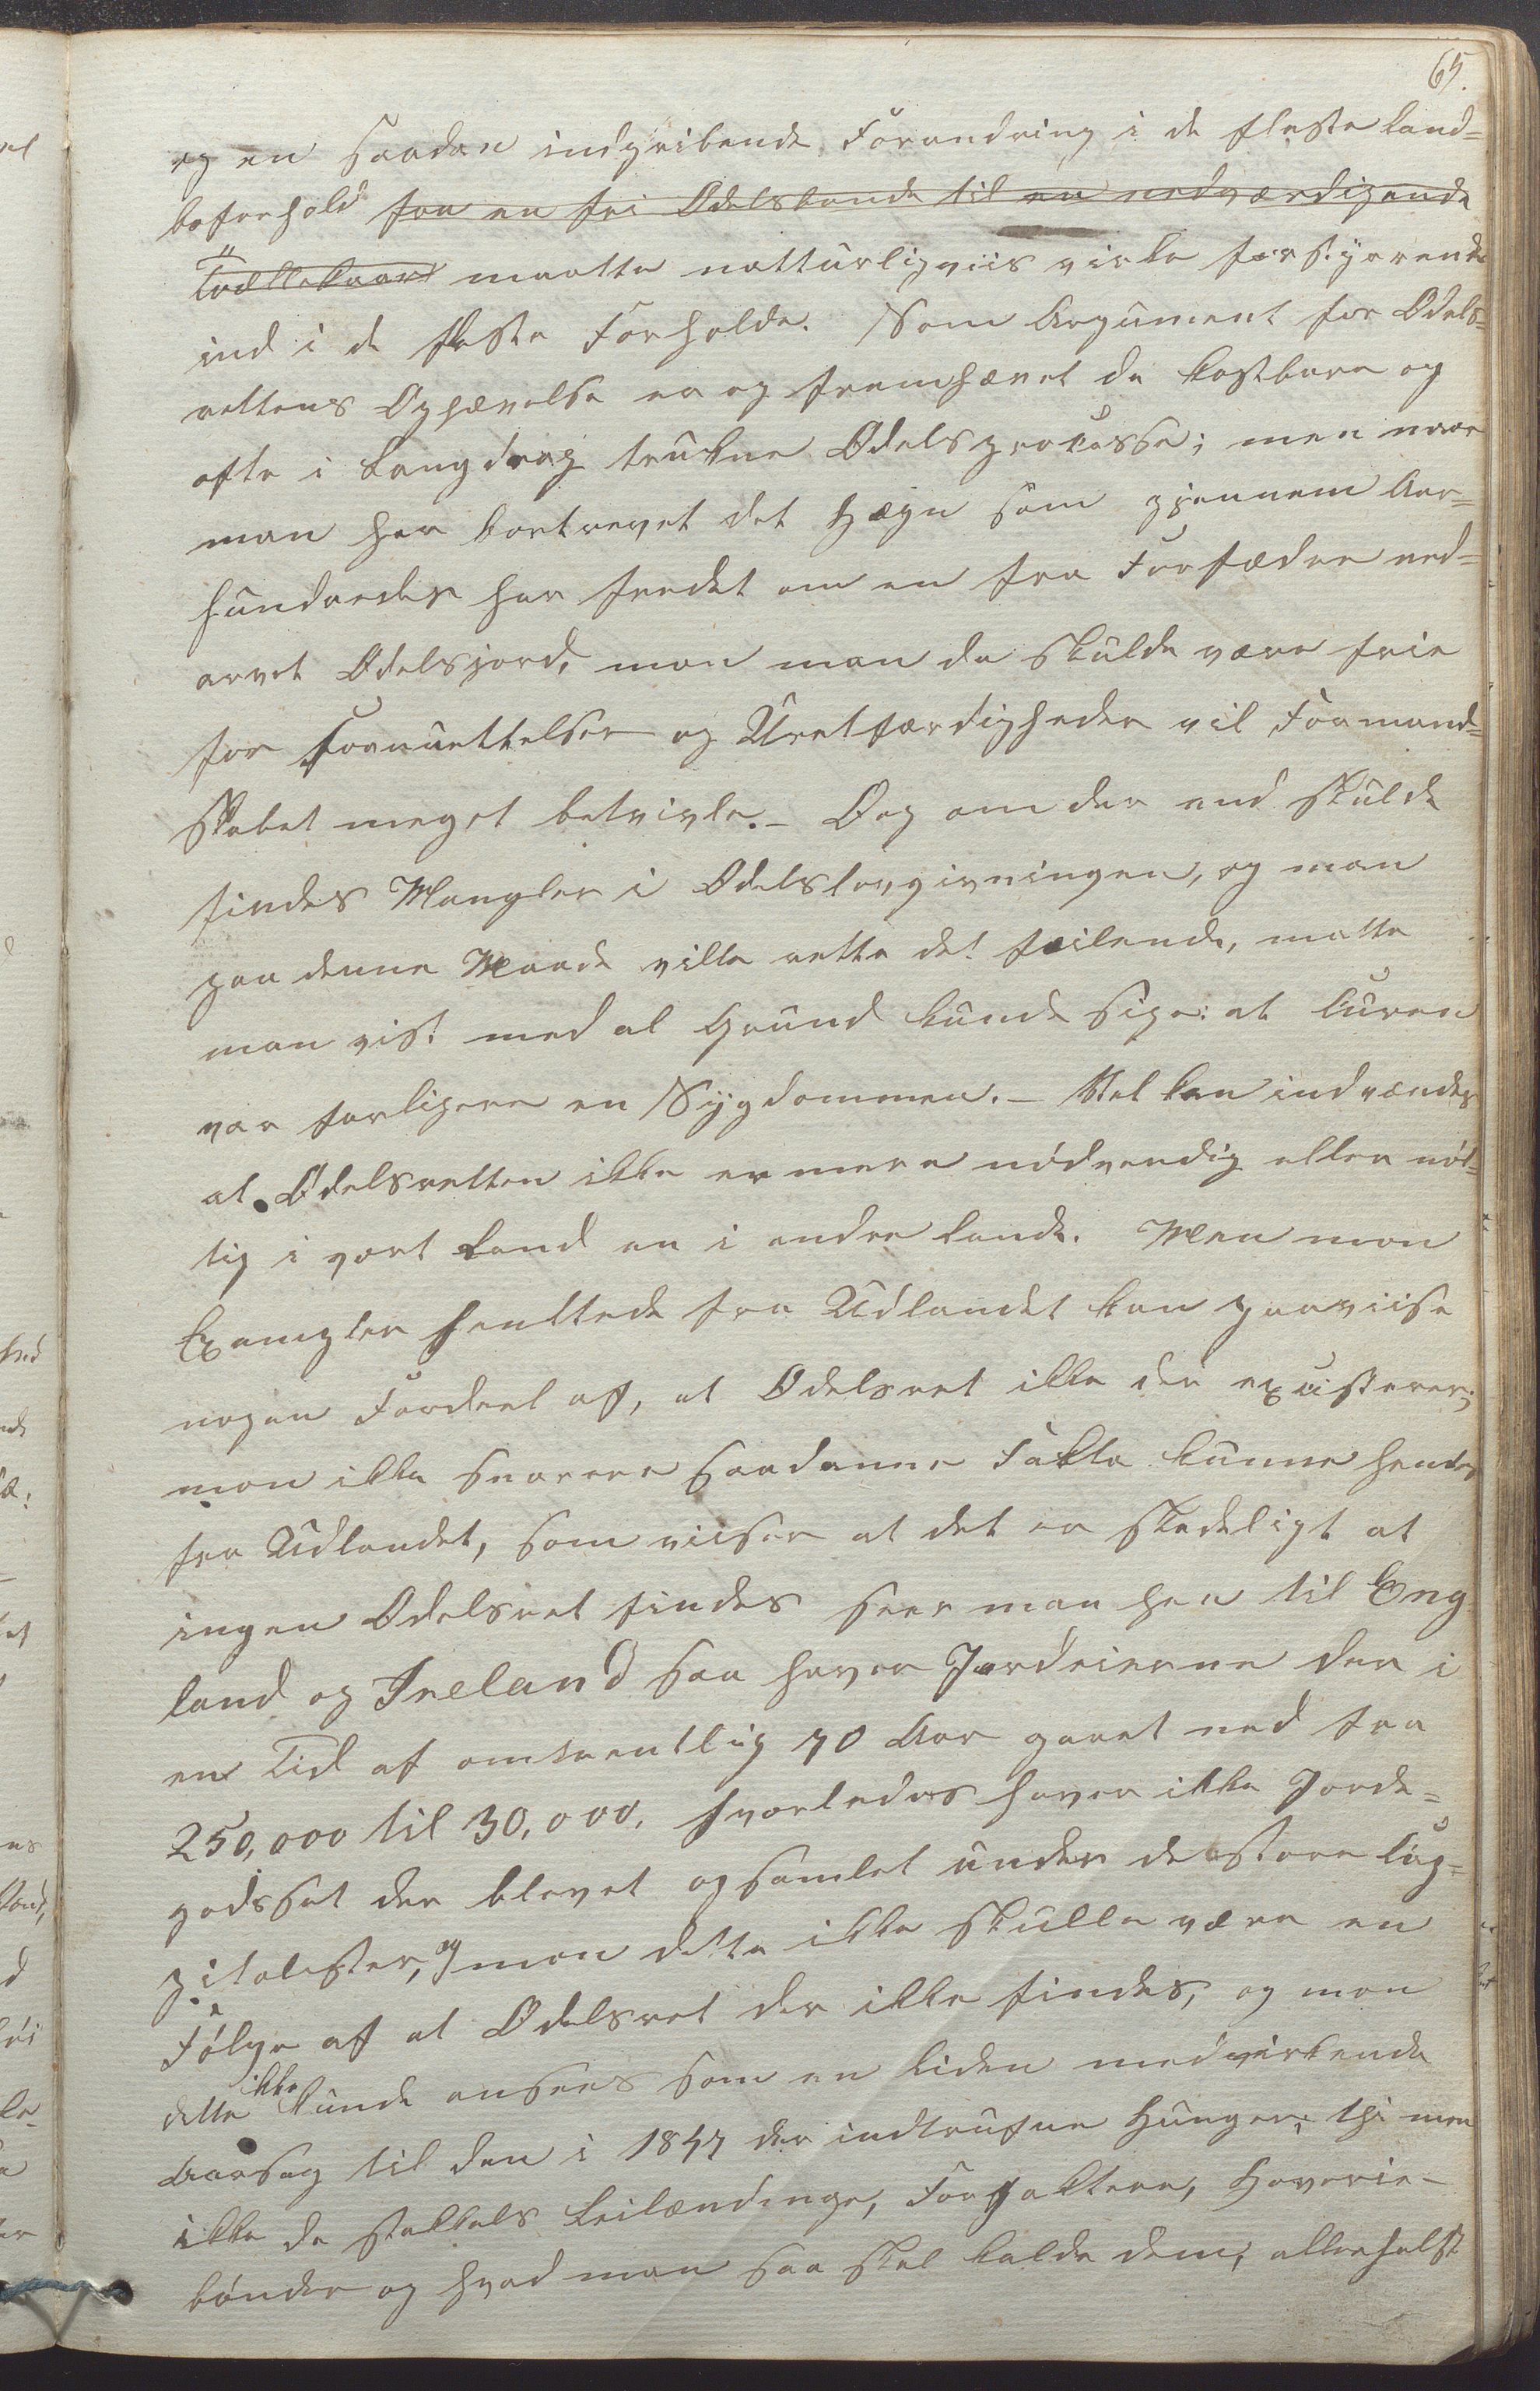 65.
og en saadan indgribende Forandring i de fleste Land=
boforhold fra en fri Odelsbonde til en nedværdigende
Trællekaar maatte natturligviis virke forstyrrende
ind i de fleste Forholde. Som Argument for Odels=
rettens Ophævelse er og fremhævet de kostbare og
ofte i Langdrag trukne Odelsprocesse; men naar
man har bortrevet det Hegn som gjennem Aar=
hundreder har fredet om en fra Forfædre ned=
arvet Odelsjord, mon man da skulde være frie
for Forurettelser og Uretfærdigheder vil Formand=
skabet meget betvivle. – Og om der end skulde
findes Mangler i Odelslovgivningen, og man
paa denne Maade ville rette det feilende, matte
man vist med al Grund kunde sige: at Curen
var farligere en Sygdommen. – Vel kan indvendes
at Odelsretten ikke er mere nödvendig eller nöt=
tig i vort Land en i andre Lande. Men mon
Exempler henttede fra Udlandet kan paaviise
nogen Fordeel af, at Odelsret ikke der existerer;
mon ikke snarere saadanne Fakta kunne hentes
fra Udlandet, som viiser at det er skadeligt at
ingen Odelsret findes seer man hen til Eng
land og Ireland saa haver Jordeierne der i
en Tid af omtrentlig 70 Aar gaaet ned fra
250,000 til 30,000. hvorledes haver ikke Jorde=
godsset der blevet opsamlet under de store Cap=
pitalister, og mon dette ikke skulle være en
Fölge af at Odelsret der ikke findes, og mon
dette ikke kunde ansees som en liden medvirkende
Aarsag til den i 1847 der indtrufne Hunger; thi mon
ikke de stakkels Leilændinge, Forpaktere, Hoverie-
bönder og hvad man saa skal kalde dem, allerhelst